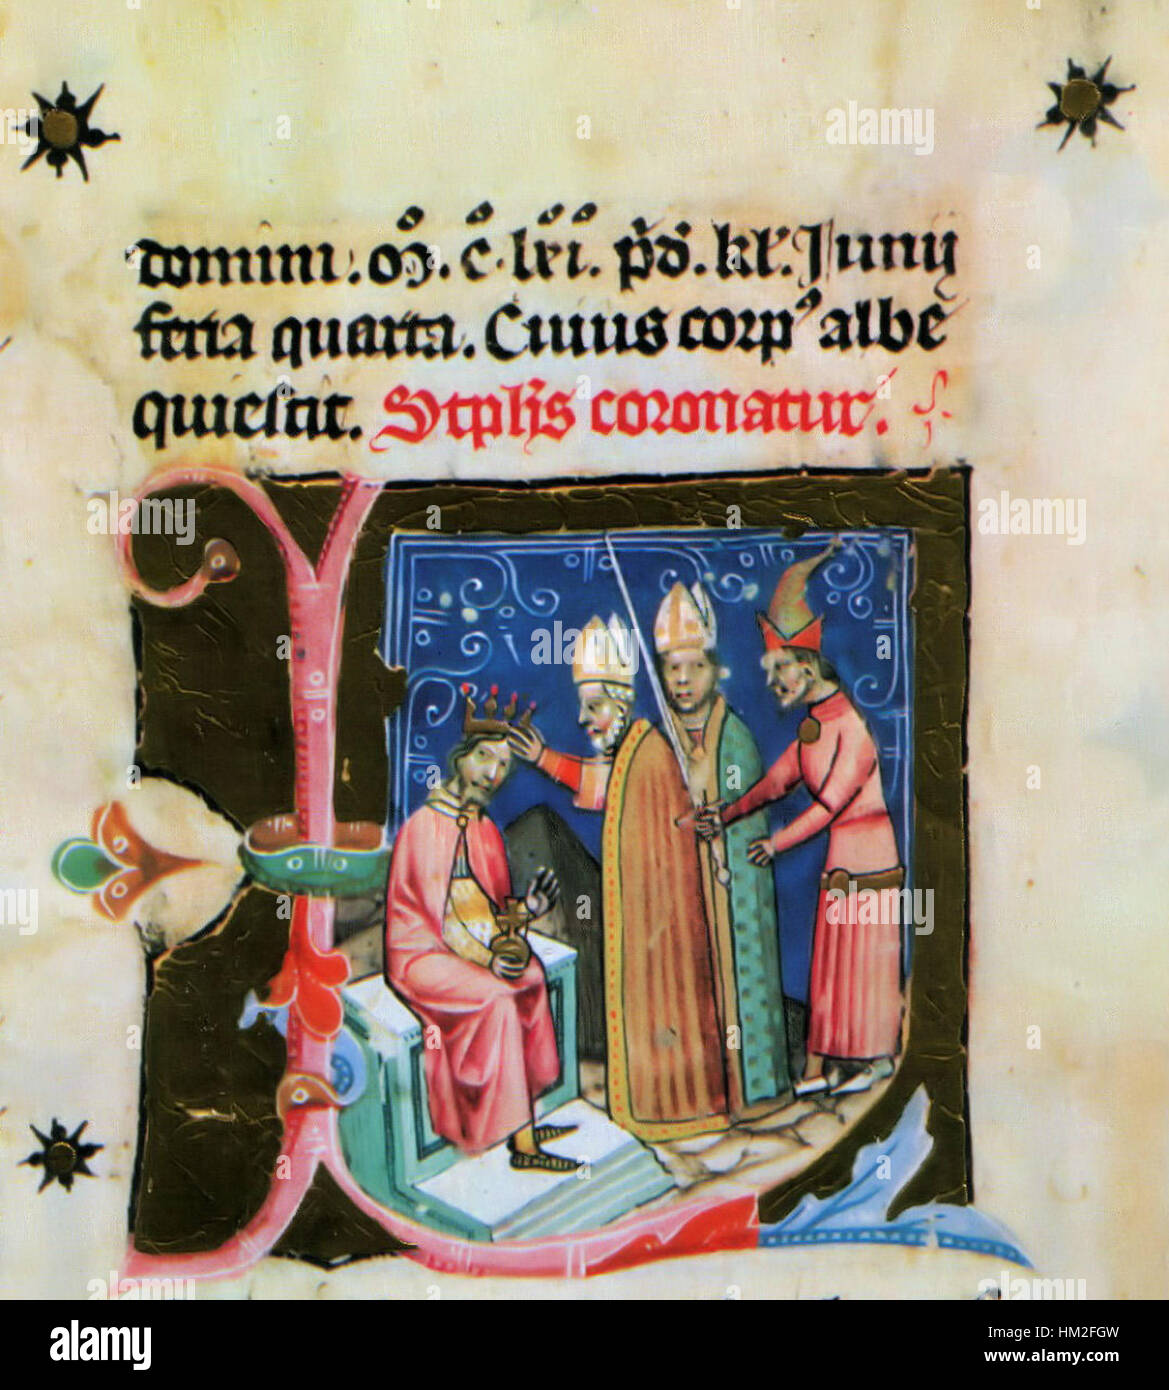 domini. Mͦ. Cͦ. lxͦiͦ. pͥdͥ. kl'. Junij
feria quarta. Cuius corpꝰ albe
quiescit. Stephꝰs coronatur.
alamy
Image ID: HM2FGW
www.alamy.com